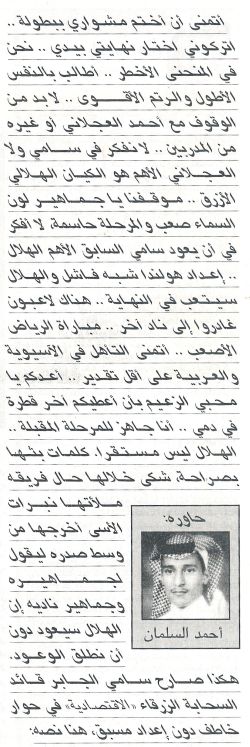 أتمنى أن أختم مشواري ببطولة..
اتركوني اختار نهايتي بيدي .. نحن
في المنحنى الأخطر .. أطالب بالنفس
الأطول والرتم الأقوى .. لا بد من
الوقوف مع أحمد العجلاني أو غيره
من المدربين .. لا نفكر في سامي ولا
العجلاني الأهم هو الكيان الهلالي
الأزرق .. موقفنا يا جماهير لون
السماء صعب والمرحلة حاسمة، لا أفكر
في أن يعود سامي السابق الأهم الهلال
.. إعداد هولندا شبه فاشل والهلال
سيتعب في النهاية .. هناك لاعبون
غادروا إلى ناد آخر .. مباراة الرياض
الأصعب .. أتمنى التأهل في الآسيوية
والعربية على أقل تقدير .. أعدكم يا
محبي الزعيم بأن أعطيكم آخر قطرة
في دمي .. أنا جاهز للمرحلة المقبلة ..
الهلال ليس مستقرا. كلمات بثها
بصراحة، شكى خلالها حال فريقه
ملأتها نبرات
الأسى أخرجها من
وسط صدره ليقول
لجماهيره
وجماهير ناديه إن
الهلال سيعود دون
أن نطلق الوعود.
هكذا صارح سامي الجابر قائد
السحابة الزرقاء «الاقتصادية» في حوار
خاطف دون إعداد مسبق، هنا نصه:
حاوره:
أحمد السلمان